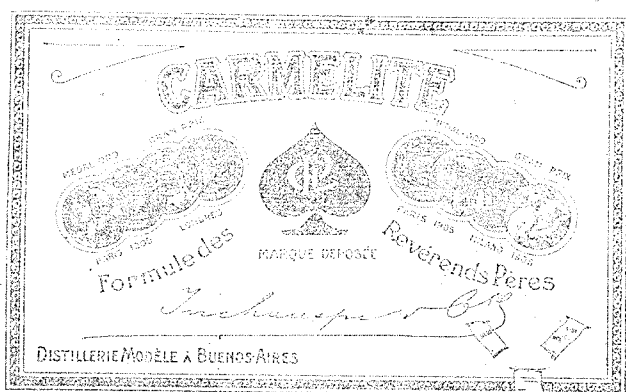 CARMELITE
MEDAL ORO GRAN PRIX
PARIS 1905 LONDRES
GRAN PRIX
PARIS 1905 MILANO 1906
MARQUE DEPOSÉE
Formule des Revérends Pères
DISTILLERIE MODÈLE A BUENOS-AIRES